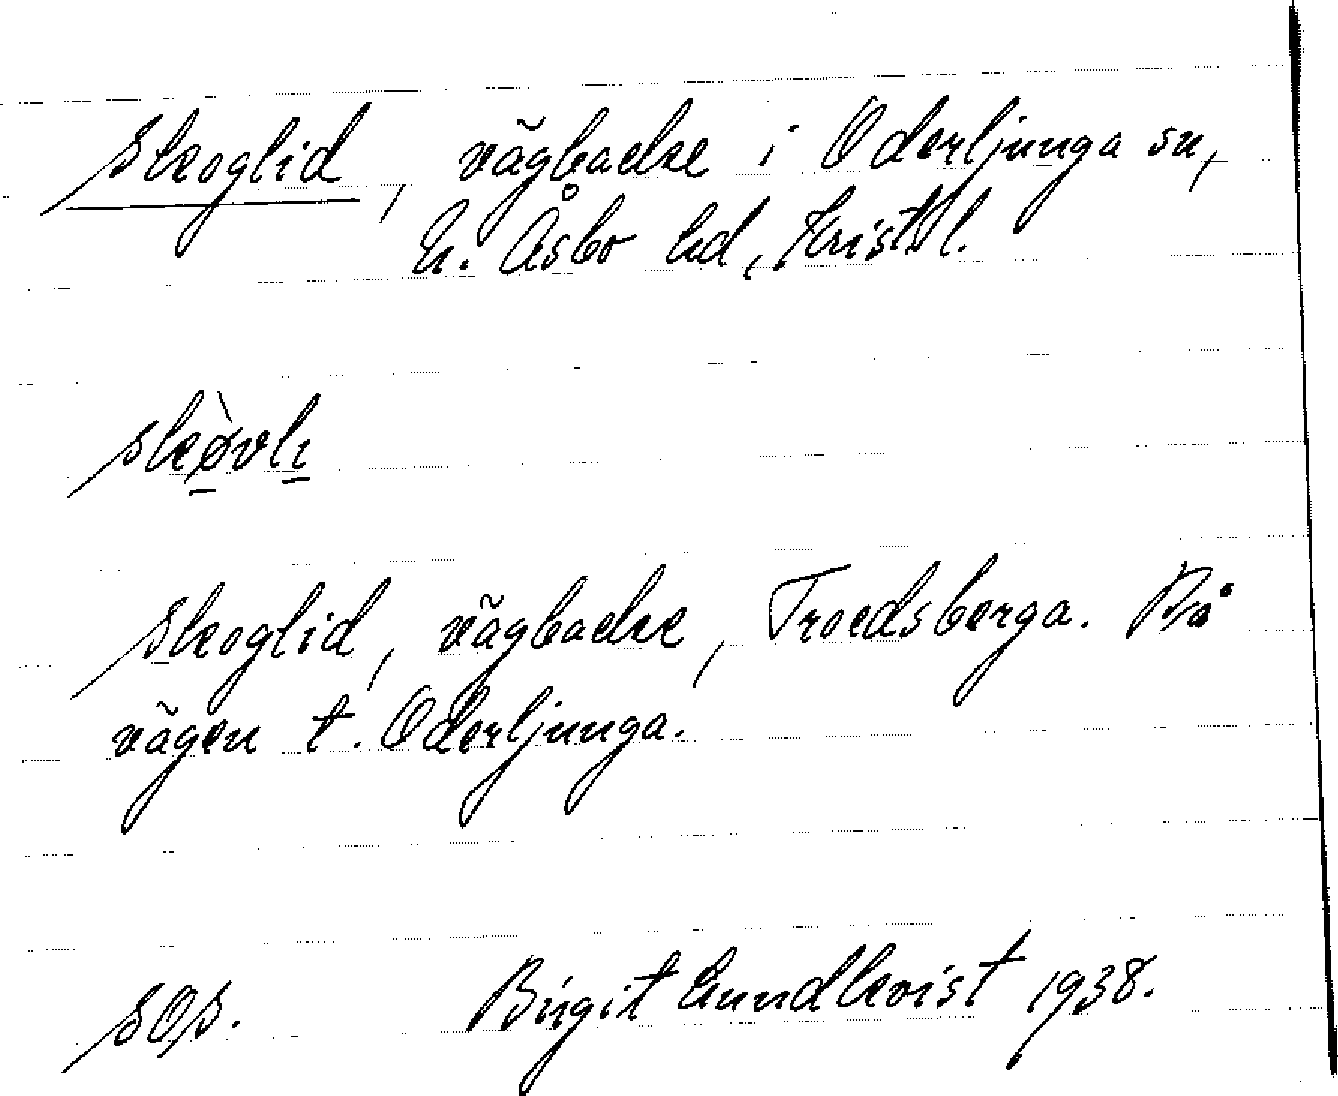 Skoglid, vägbacke i Oderljunga sn,
N. Åsbo hd, Kristl.
skø̀vlı
Skoglid, vägbacke, Troedsberga. På
vägen t. Oderljunga.
SOS. Birgit Lundkvist 1938.